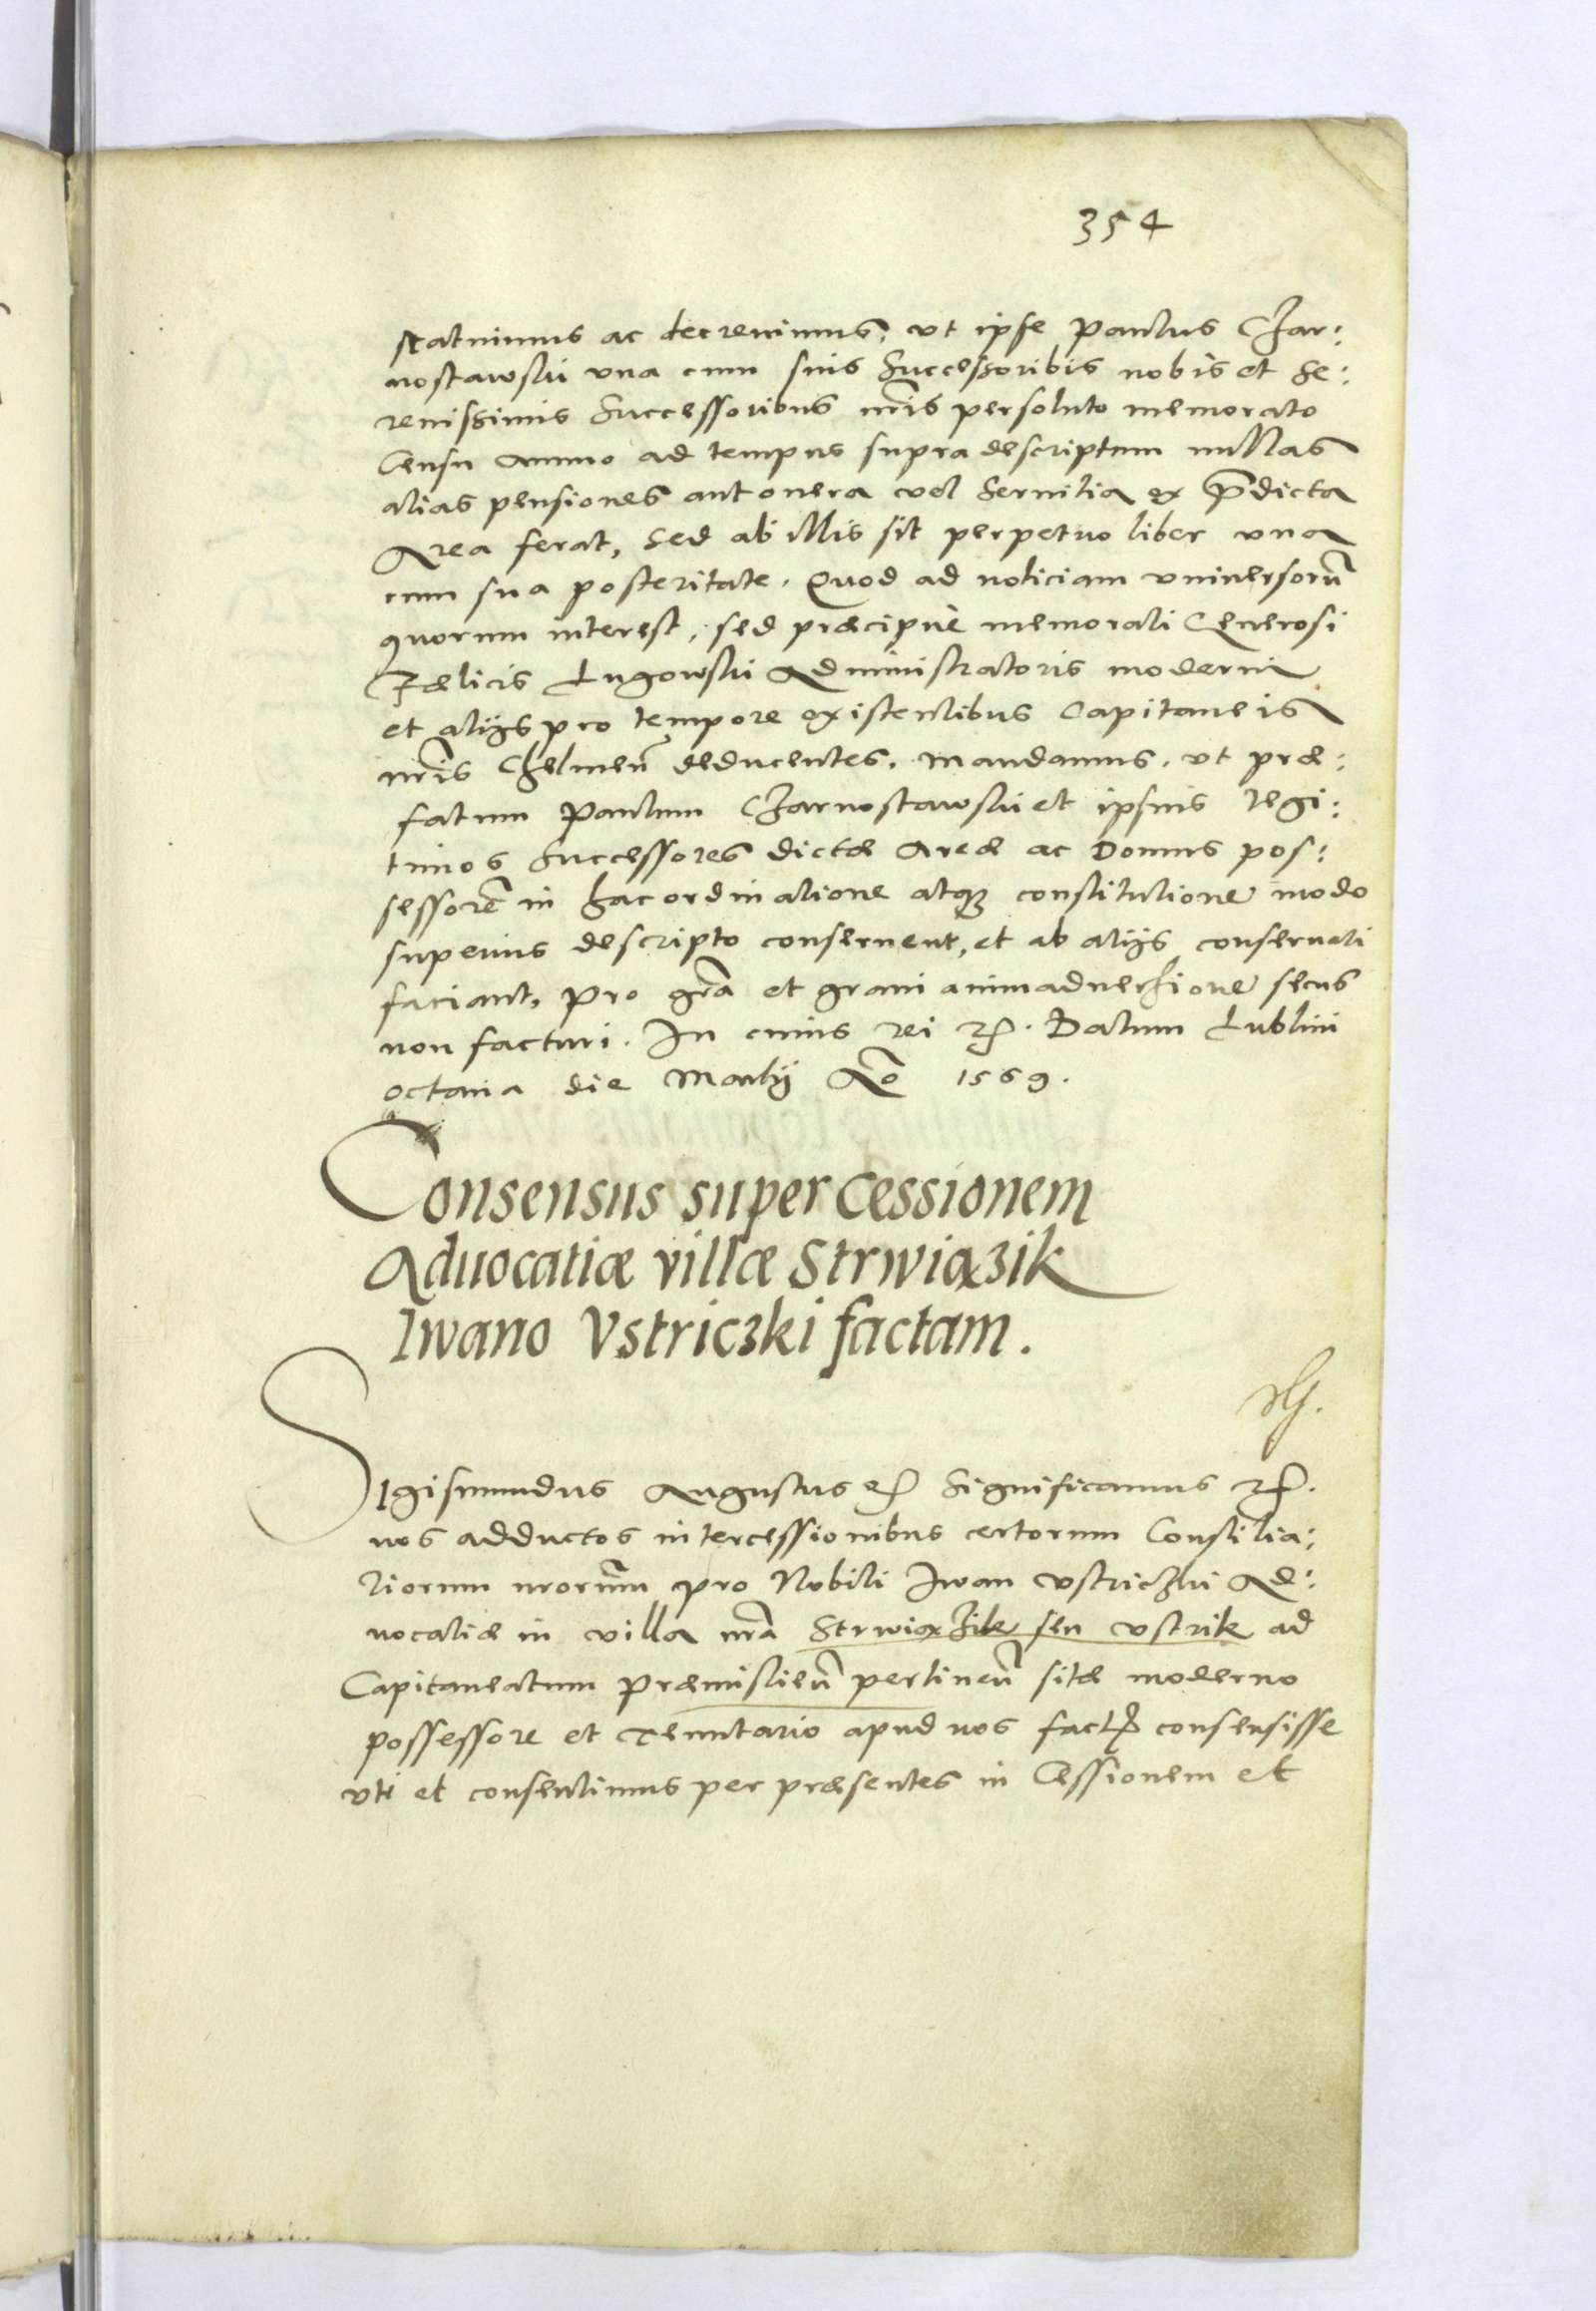 354
statuimus ac decreuimus, vt ipse Paulus Czar:
nostawski vna cum suis Successoribus nobis et Se:
renissimis Successoribus nr̃is persoluto memorato
Censu annuo ad tempus supra descriptum nullas
alias pensiones aut onera vel seruitia ex p̃dicta
Area ferat, sed ab illis sit perpetuo liber vna
cum sua posteritate. Quod ad noticiam vniuersorũ
quorum interest, sed præcipuè memorati Generosi
Fælicis Lugowski Administratoris moderni
et alijs pro tempore existentibus Capitaneis
nr̃is Chelmeñ deducentes, mandamus, vt præ:
fatum Paulum Czarnostawski et ipsius legi:
timos Successores dictæ Areæ ac Domus pos:
sessorẽ in hac ordinatione atq; constitutione modo
superius descripto conseruent, et ab alijs conseruati
faciant, pro gr̃a et graui animaduersione secus
non facturi. In cuius rei &c. Datum Lublini
octaua die Martij Ao 1569.
Consensus super cessionem
Aduocatiæ villæ Strwiążik
Iwano Vstriczki factam.
Sigismundus Augustus &c Significamus &c.
nos adductos intercessionibus certorum Consilia:
riorum nrorum̃ pro Nobili Iwan vstriczki Ad:
uocatiæ in villa nr̃a Strwiążik seu vstrik ad
Capitaneatum Præmislieñ pertineñ sitæ moderno
possessore et Tenutario apud nos fact; consensisse
vti et consentimus per præsentes in Cessionem et